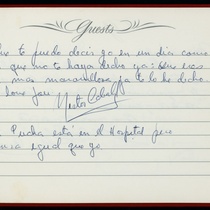 Guests
te puedo decir yo en un día como
que no te haya dicho ya: que eres
mas maravillosa ya te lo he dicho
Love you
Nestor
Pucha está en el Hospital pero
igual que yo